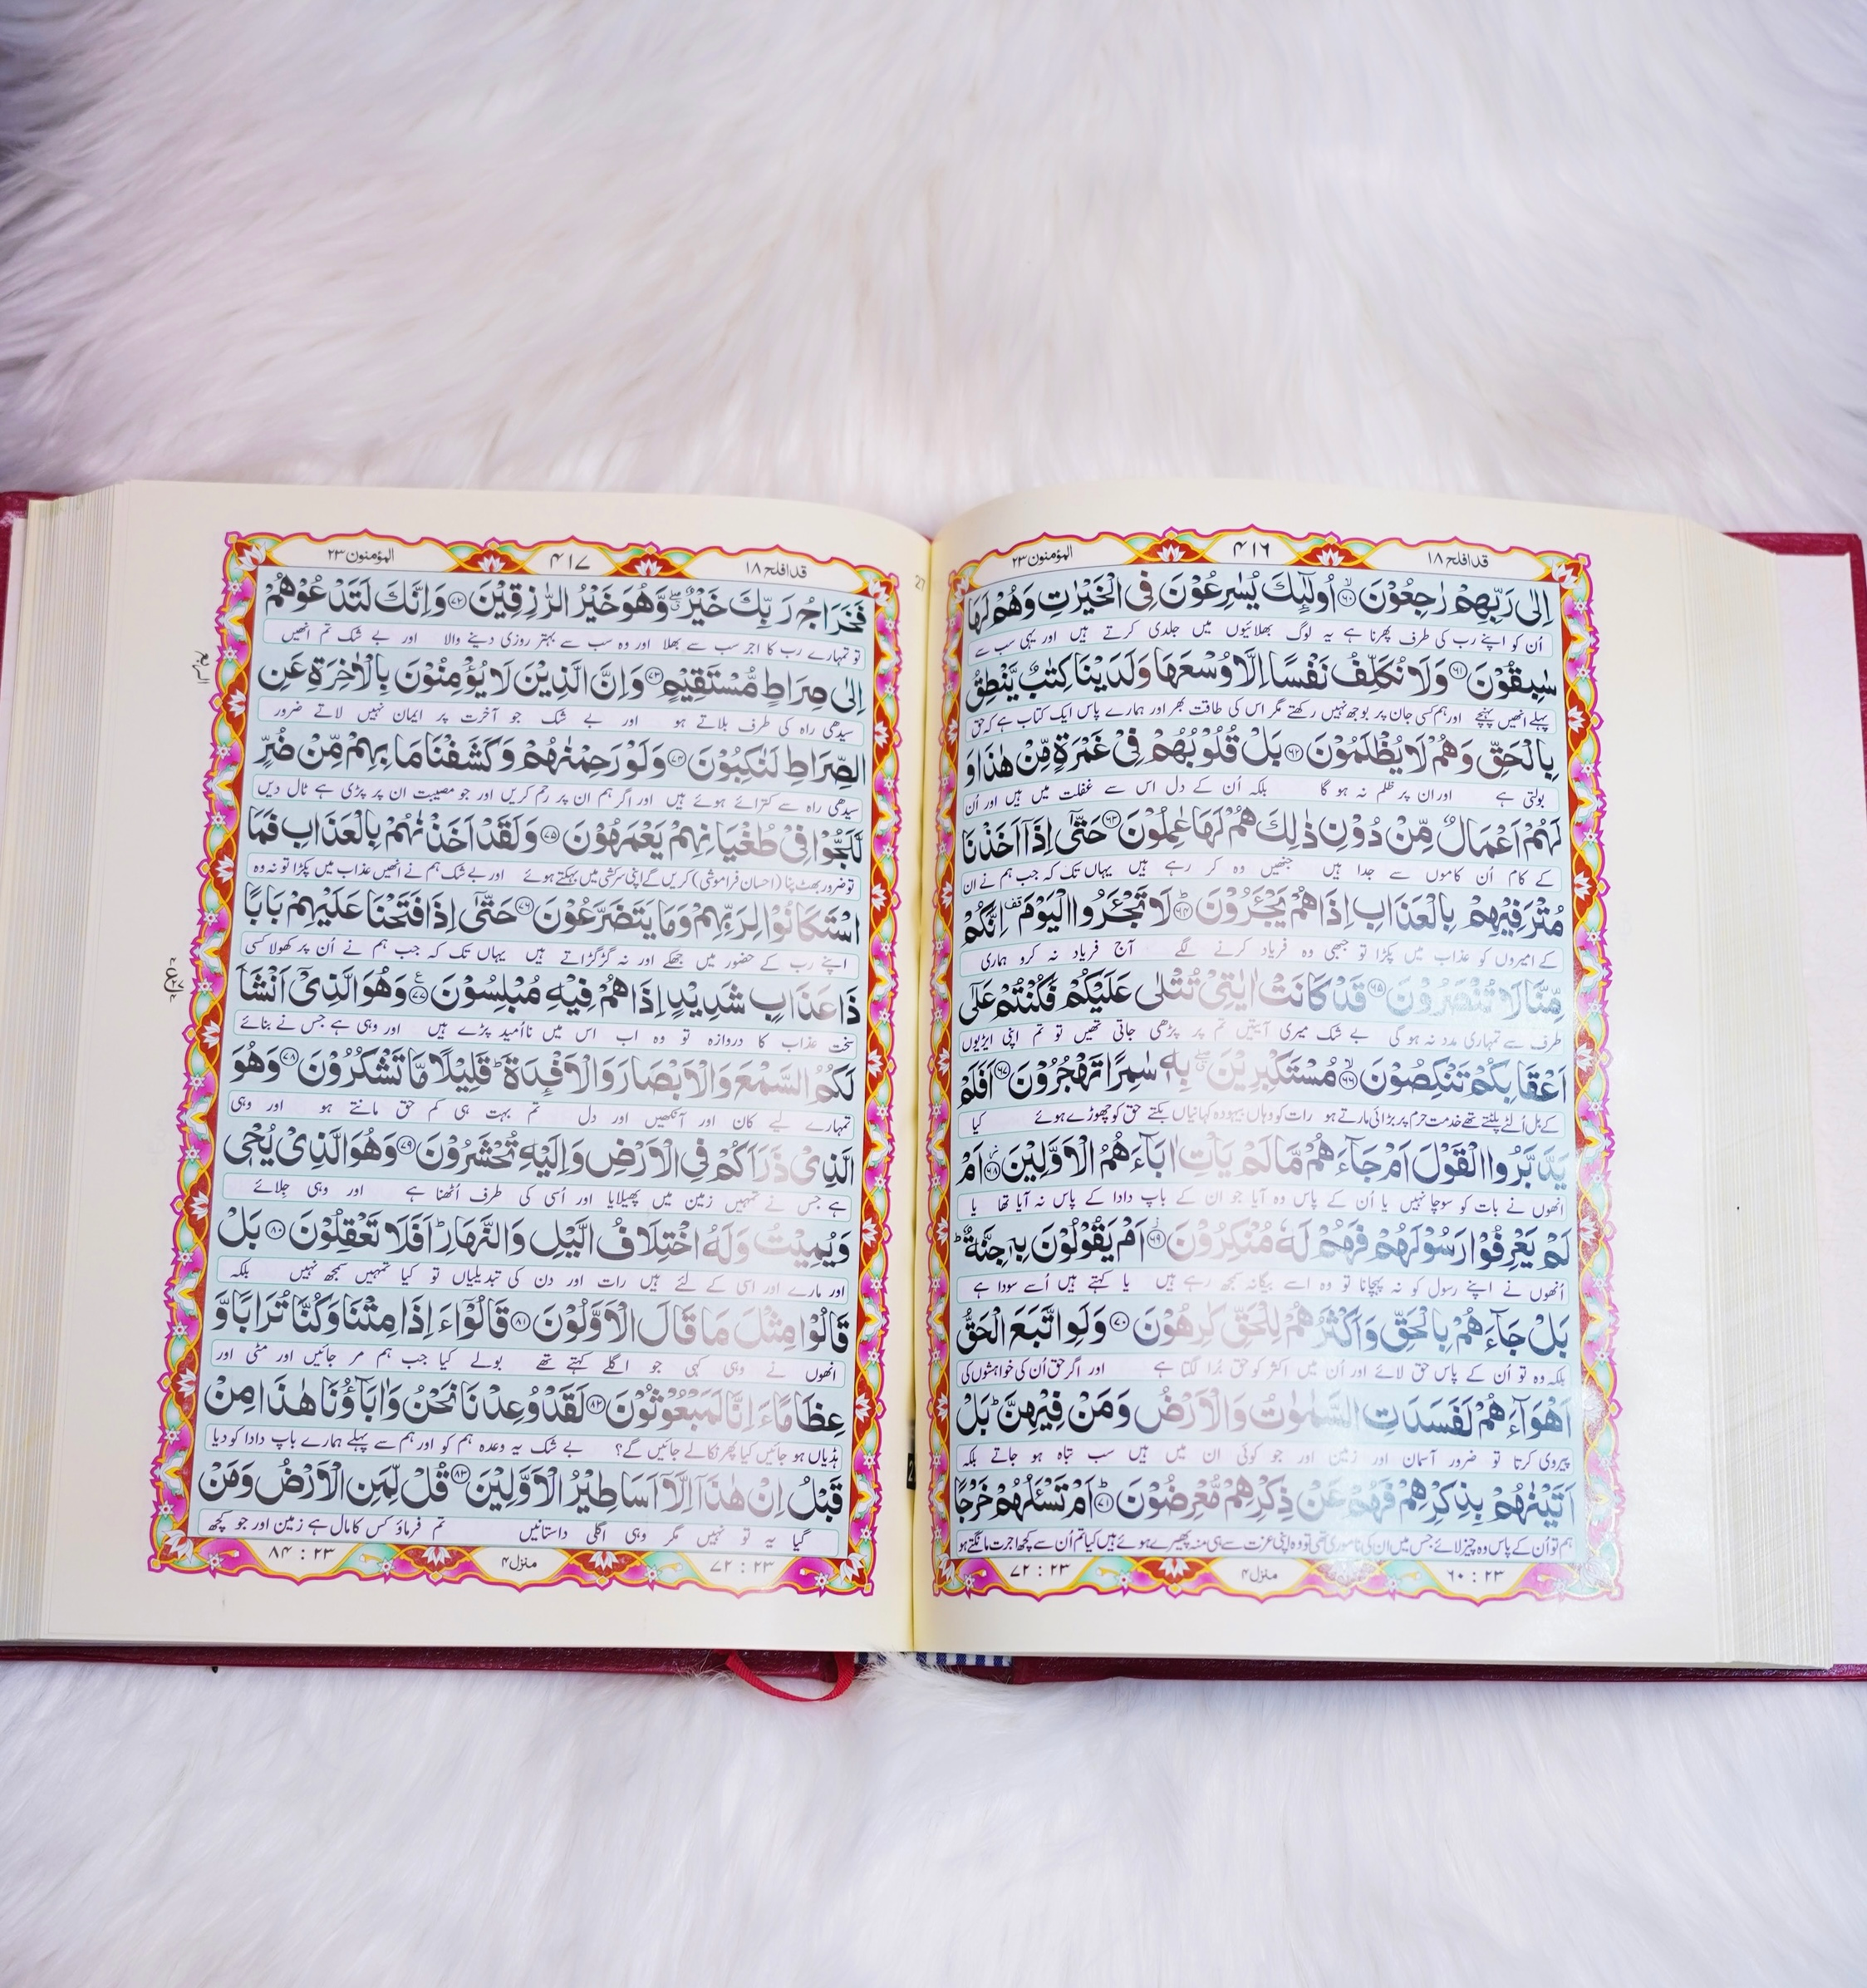 قد افلح ۱۸
۴۱۶
المؤمنون ۲۳
اِلٰى رَبِّهِمْ رٰجِعُوْنَ ﴿۶۰﴾ اُولٰٓئِكَ يُسٰرِعُوْنَ فِى الْخَيْرٰتِ وَهُمْ لَهَا
اُن کو اپنے رب کی طرف پھرنا ہے یہ لوگ بھلائیوں میں جلدی کرتے ہیں اور یہی سب سے
سٰبِقُوْنَ ﴿۶۱﴾ وَلَا نُكَلِّفُ نَفْسًا اِلَّا وُسْعَهَا وَلَدَيْنَا كِتٰبٌ يَّنْطِقُ
پہلے انھیں پہنچے اور ہم کسی جان پر بوجھ نہیں رکھتے مگر اس کی طاقت بھر اور ہمارے پاس ایک کتاب ہے کہ حق
بِالْحَقِّ وَهُمْ لَا يُظْلَمُوْنَ ﴿۶۲﴾ بَلْ قُلُوْبُهُمْ فِىْ غَمْرَةٍ مِّنْ هٰذَا وَ
بولتی ہے اور ان پر ظلم نہ ہو گا بلکہ اُن کے دل اس سے غفلت میں ہیں اور اُن
لَهُمْ اَعْمَالٌ مِّنْ دُوْنِ ذٰلِكَ هُمْ لَهَا عٰمِلُوْنَ ﴿۶۳﴾ حَتّٰٓى اِذَآ اَخَذْنَا
کے کام اُن کاموں سے جدا ہیں جنھیں وہ کر رہے ہیں یہاں تک کہ جب ہم نے ان
مُتْرَفِيْهِمْ بِالْعَذَابِ اِذَا هُمْ يَجْـَٔرُوْنَ ﴿۶۴﴾ لَا تَجْـَٔرُوا الْيَوْمَ اِنَّكُمْ
کے امیروں کو عذاب میں پکڑا تو جبھی وہ فریاد کرنے لگے آج فریاد نہ کرو ہماری
مِّنَّا لَا تُنْصَرُوْنَ ﴿۶۵﴾ قَدْ كَانَتْ اٰيٰتِىْ تُتْلٰى عَلَيْكُمْ فَكُنْتُمْ عَلٰٓى
طرف سے تمہاری مدد نہ ہو گی بے شک میری آیتیں تم پر پڑھی جاتی تھیں تو تم اپنی ایڑیوں
اَعْقَابِكُمْ تَنْكِصُوْنَ ﴿۶۶﴾ مُسْتَكْبِرِيْنَ بِهٖ سٰمِرًا تَهْجُرُوْنَ ﴿۶۷﴾ اَفَلَمْ
کے بل اُلٹے پلٹتے تھے خدمت حرم پر بڑائی مارتے ہو رات کو وہاں بیہودہ کہانیاں بکتے حق کو چھوڑے ہوئے کیا
يَدَّبَّرُوا الْقَوْلَ اَمْ جَآءَهُمْ مَّا لَمْ يَاْتِ اٰبَآءَهُمُ الْاَوَّلِيْنَ ﴿۶۸﴾ اَمْ
انھوں نے بات کو سوچا نہیں یا اُن کے پاس وہ آیا جو ان کے باپ دادا کے پاس نہ آیا تھا یا
لَمْ يَعْرِفُوْا رَسُوْلَهُمْ فَهُمْ لَهٗ مُنْكِرُوْنَ ﴿۶۹﴾ اَمْ يَقُوْلُوْنَ بِهٖ جِنَّةٌ
اُنھوں نے اپنے رسول کو نہ پہچانا تو وہ اسے بیگانہ سمجھ رہے ہیں یا کہتے ہیں اُسے سودا ہے
بَلْ جَآءَهُمْ بِالْحَقِّ وَاَكْثَرُهُمْ لِلْحَقِّ كٰرِهُوْنَ ﴿۷۰﴾ وَلَوِ اتَّبَعَ الْحَقُّ
بلکہ وہ تو اُن کے پاس حق لائے اور اُن میں اکثر کو حق بُرا لگتا ہے اور اگر حق اُن کی خواہشوں کی
اَهْوَآءَهُمْ لَفَسَدَتِ السَّمٰوٰتُ وَالْاَرْضُ وَمَنْ فِيْهِنَّ بَلْ
پیروی کرتا تو ضرور آسمان اور زمین اور جو کوئی ان میں ہیں سب تباہ ہو جاتے بلکہ
اَتَيْنٰهُمْ بِذِكْرِهِمْ فَهُمْ عَنْ ذِكْرِهِمْ مُّعْرِضُوْنَ ﴿۷۱﴾ اَمْ تَسْـَٔلُهُمْ خَرْجًا
ہم تو اُن کے پاس وہ چیز لائے جس میں ان کی ناموری تھی تو وہ اپنی عزت سے ہی منہ پھیرے ہوئے ہیں کیا تم اُن سے کچھ اجرت مانگتے ہو
۲۳ : ۶۰
منزل ۴
۲۳ : ۷۲
قد افلح ۱۸
۴۱۷
المؤمنون ۲۳
فَخَرَاجُ رَبِّكَ خَيْرٌ وَّهُوَ خَيْرُ الرّٰزِقِيْنَ ﴿۷۲﴾ وَاِنَّكَ لَتَدْعُوْهُمْ
تو تمہارے رب کا اجر سب سے بھلا اور وہ سب سے بہتر روزی دینے والا اور بے شک تم انھیں
اِلٰى صِرَاطٍ مُّسْتَقِيْمٍ ﴿۷۳﴾ وَاِنَّ الَّذِيْنَ لَا يُؤْمِنُوْنَ بِالْاٰخِرَةِ عَنِ
سیدھی راہ کی طرف بلاتے ہو اور بے شک جو آخرت پر ایمان نہیں لاتے ضرور
الصِّرَاطِ لَنٰكِبُوْنَ ﴿۷۴﴾ وَلَوْ رَحِمْنٰهُمْ وَكَشَفْنَا مَا بِهِمْ مِّنْ ضُرٍّ
سیدھی راہ سے کترائے ہوئے ہیں اور اگر ہم ان پر رحم کریں اور جو مصیبت ان پر پڑی ہے ٹال دیں
لَّلَجُّوْا فِىْ طُغْيَانِهِمْ يَعْمَهُوْنَ ﴿۷۵﴾ وَلَقَدْ اَخَذْنٰهُمْ بِالْعَذَابِ فَمَا
تو ضرور بھٹ پنا (احسان فراموشی) کریں گے اپنی سرکشی میں بہکتے ہوئے اور بے شک ہم نے انھیں عذاب میں پکڑا تو نہ وہ
اسْتَكَانُوْا لِرَبِّهِمْ وَمَا يَتَضَرَّعُوْنَ ﴿۷۶﴾ حَتّٰٓى اِذَا فَتَحْنَا عَلَيْهِمْ بَابًا
اپنے رب کے حضور میں جھکے اور نہ گڑگڑاتے ہیں یہاں تک کہ جب ہم نے اُن پر کھولا کسی
ذَا عَذَابٍ شَدِيْدٍ اِذَا هُمْ فِيْهِ مُبْلِسُوْنَ ﴿۷۷﴾ وَهُوَ الَّذِىْٓ اَنْشَاَ
سخت عذاب کا دروازہ تو وہ اب اس میں ناامید پڑے ہیں اور وہی ہے جس نے بنائے
لَكُمُ السَّمْعَ وَالْاَبْصَارَ وَالْاَفْـِٕدَةَ قَلِيْلًا مَّا تَشْكُرُوْنَ ﴿۷۸﴾ وَهُوَ
تمہارے لیے کان اور آنکھیں اور دل تم بہت ہی کم حق مانتے ہو اور وہی
الَّذِىْ ذَرَاَكُمْ فِى الْاَرْضِ وَاِلَيْهِ تُحْشَرُوْنَ ﴿۷۹﴾ وَهُوَ الَّذِىْ يُحْىٖ
ہے جس نے تمہیں زمین میں پھیلایا اور اُسی کی طرف اُٹھنا ہے اور وہی جِلائے
وَيُمِيْتُ وَلَهُ اخْتِلَافُ الَّيْلِ وَالنَّهَارِ اَفَلَا تَعْقِلُوْنَ ﴿۸۰﴾ بَلْ
اور مارے اور اسی کے لئے ہیں رات اور دن کی تبدیلیاں تو کیا تمہیں سمجھ نہیں بلکہ
قَالُوْا مِثْلَ مَا قَالَ الْاَوَّلُوْنَ ﴿۸۱﴾ قَالُوْٓا ءَاِذَا مِتْنَا وَكُنَّا تُرَابًا وَّ
انھوں نے وہی کہی جو اگلے کہتے تھے بولے کیا جب ہم مر جائیں اور مٹی اور
عِظَامًا ءَاِنَّا لَمَبْعُوْثُوْنَ ﴿۸۲﴾ لَقَدْ وُعِدْنَا نَحْنُ وَاٰبَآؤُنَا هٰذَا مِنْ
ہڈیاں ہو جائیں کیا پھر نکالے جائیں گے؟ بے شک یہ وعدہ ہم کو اور ہم سے پہلے ہمارے باپ دادا کو دیا
قَبْلُ اِنْ هٰذَآ اِلَّآ اَسَاطِيْرُ الْاَوَّلِيْنَ ﴿۸۳﴾ قُلْ لِّمَنِ الْاَرْضُ وَمَنْ
گیا یہ تو نہیں مگر وہی اگلی داستانیں تم فرماؤ کس کا مال ہے زمین اور جو کچھ
۲۳ : ۷۲
منزل ۴
۲۳ : ۸۴